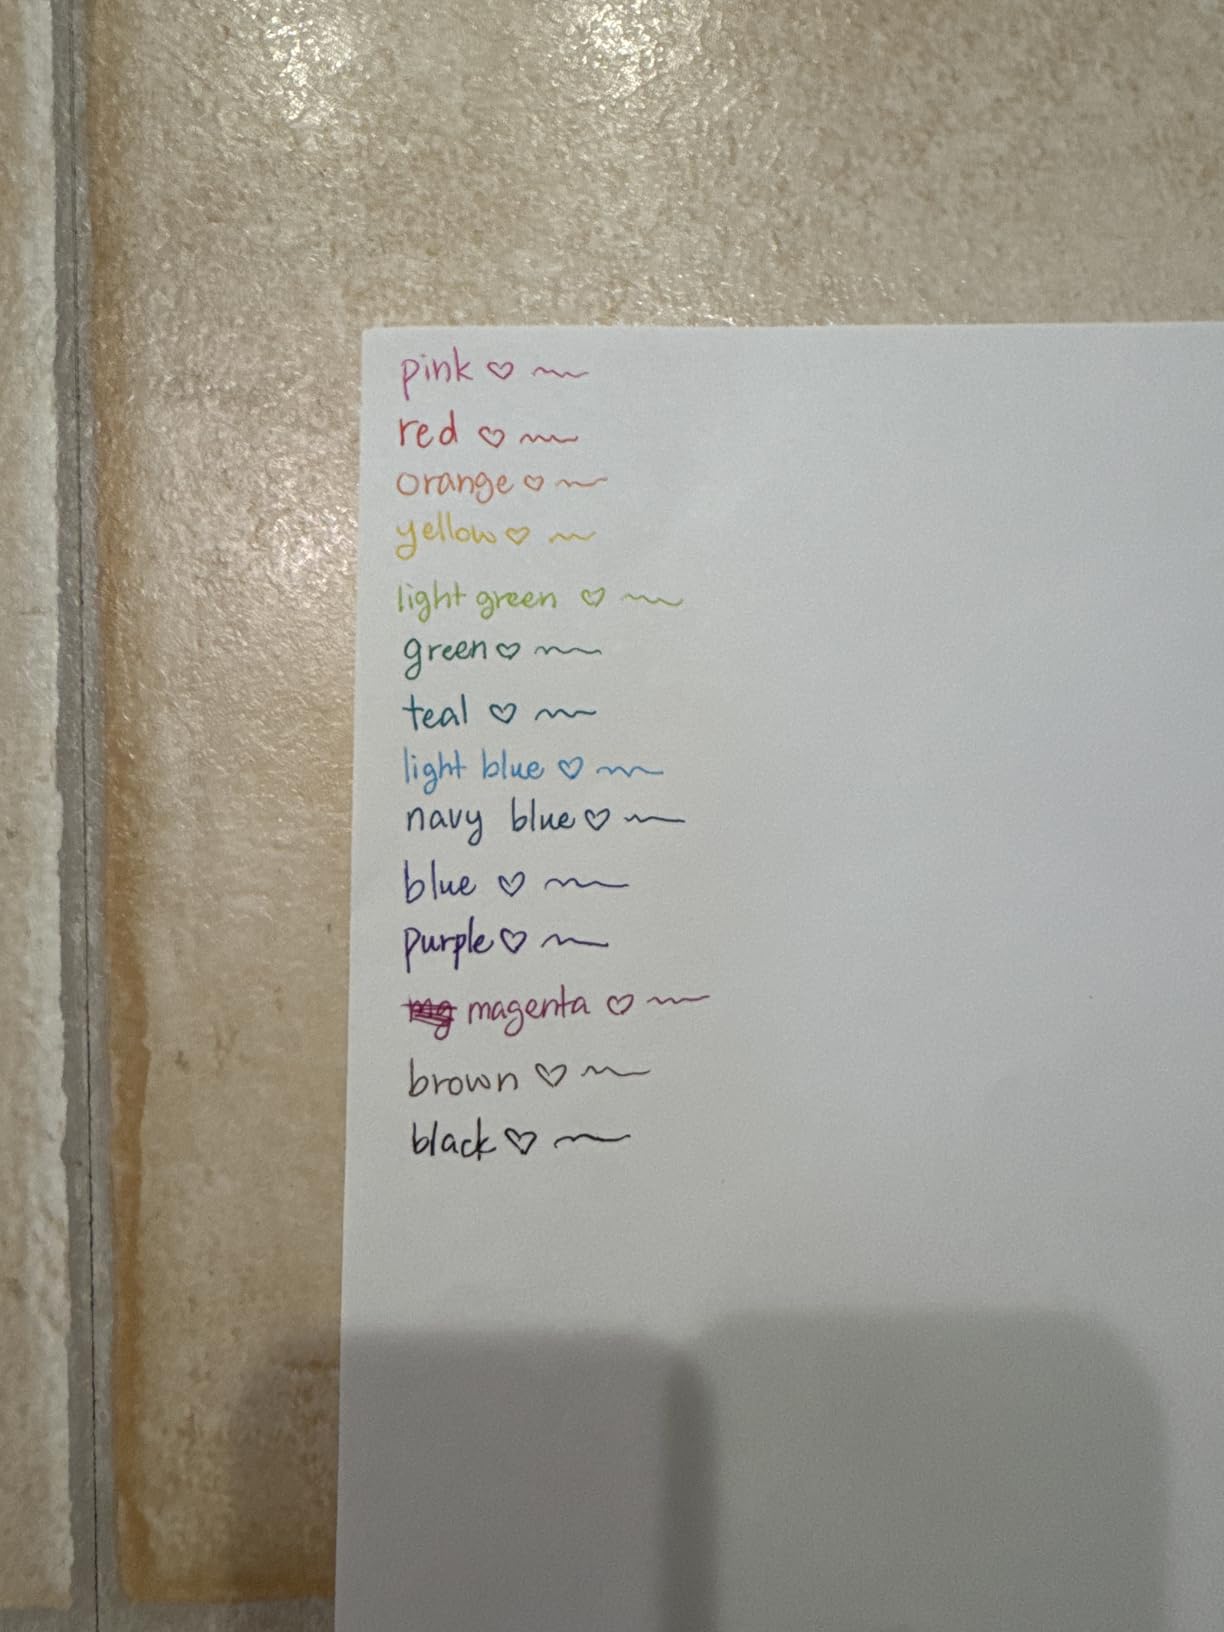 pink ♡
red ♡
orange ♡
yellow ♡
light green ♡
green ♡
teal ♡
light blue ♡
navy blue ♡
blue ♡
purple ♡
mg magenta ♡
brown ♡
black ♡